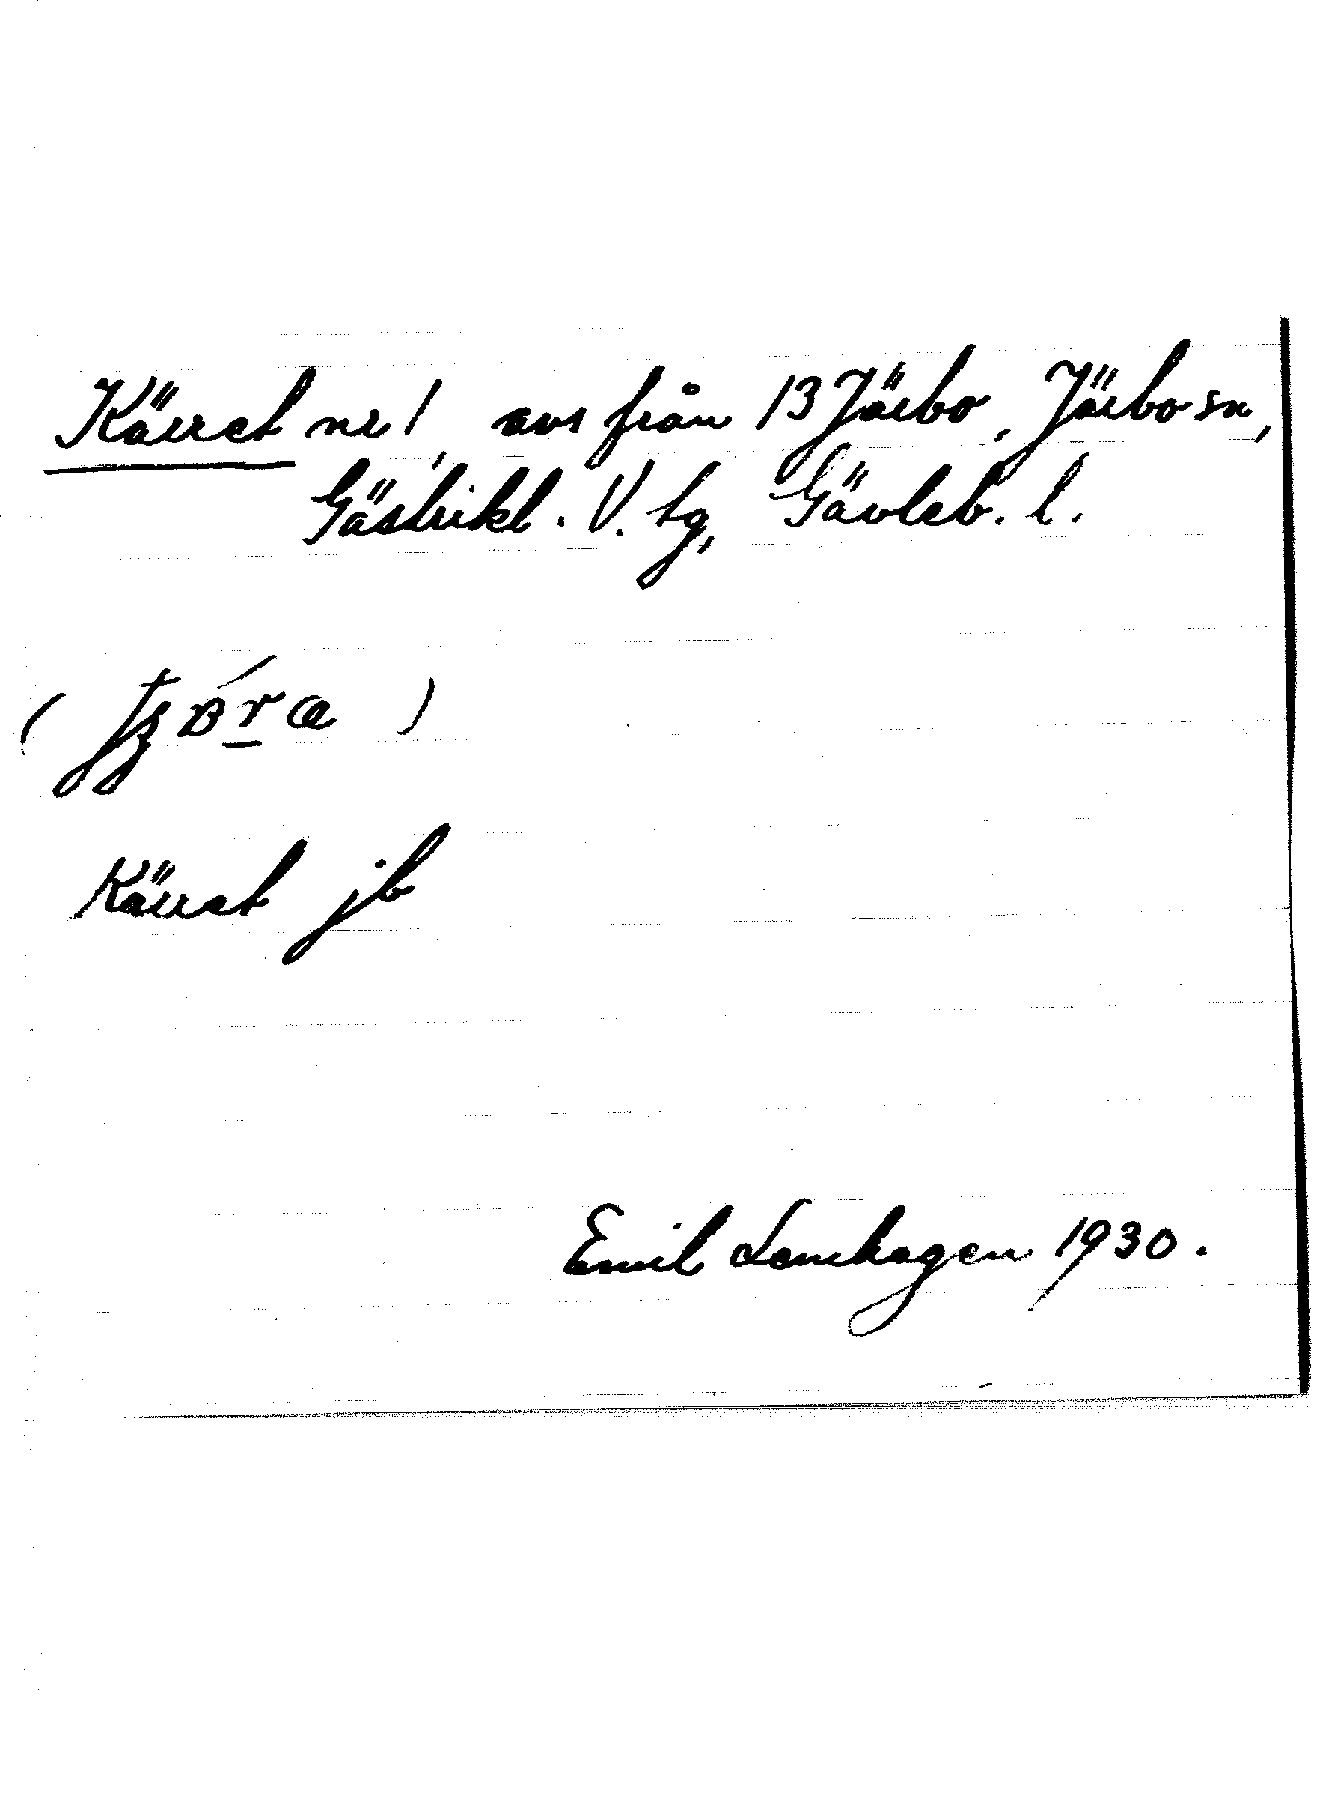 Kärret nr 1, avs från 13 Järbo, Järbo sn,
Gästrikl. V. tg, Gävleb. l.
Kärret jb
Emil Lenhagen 1930.